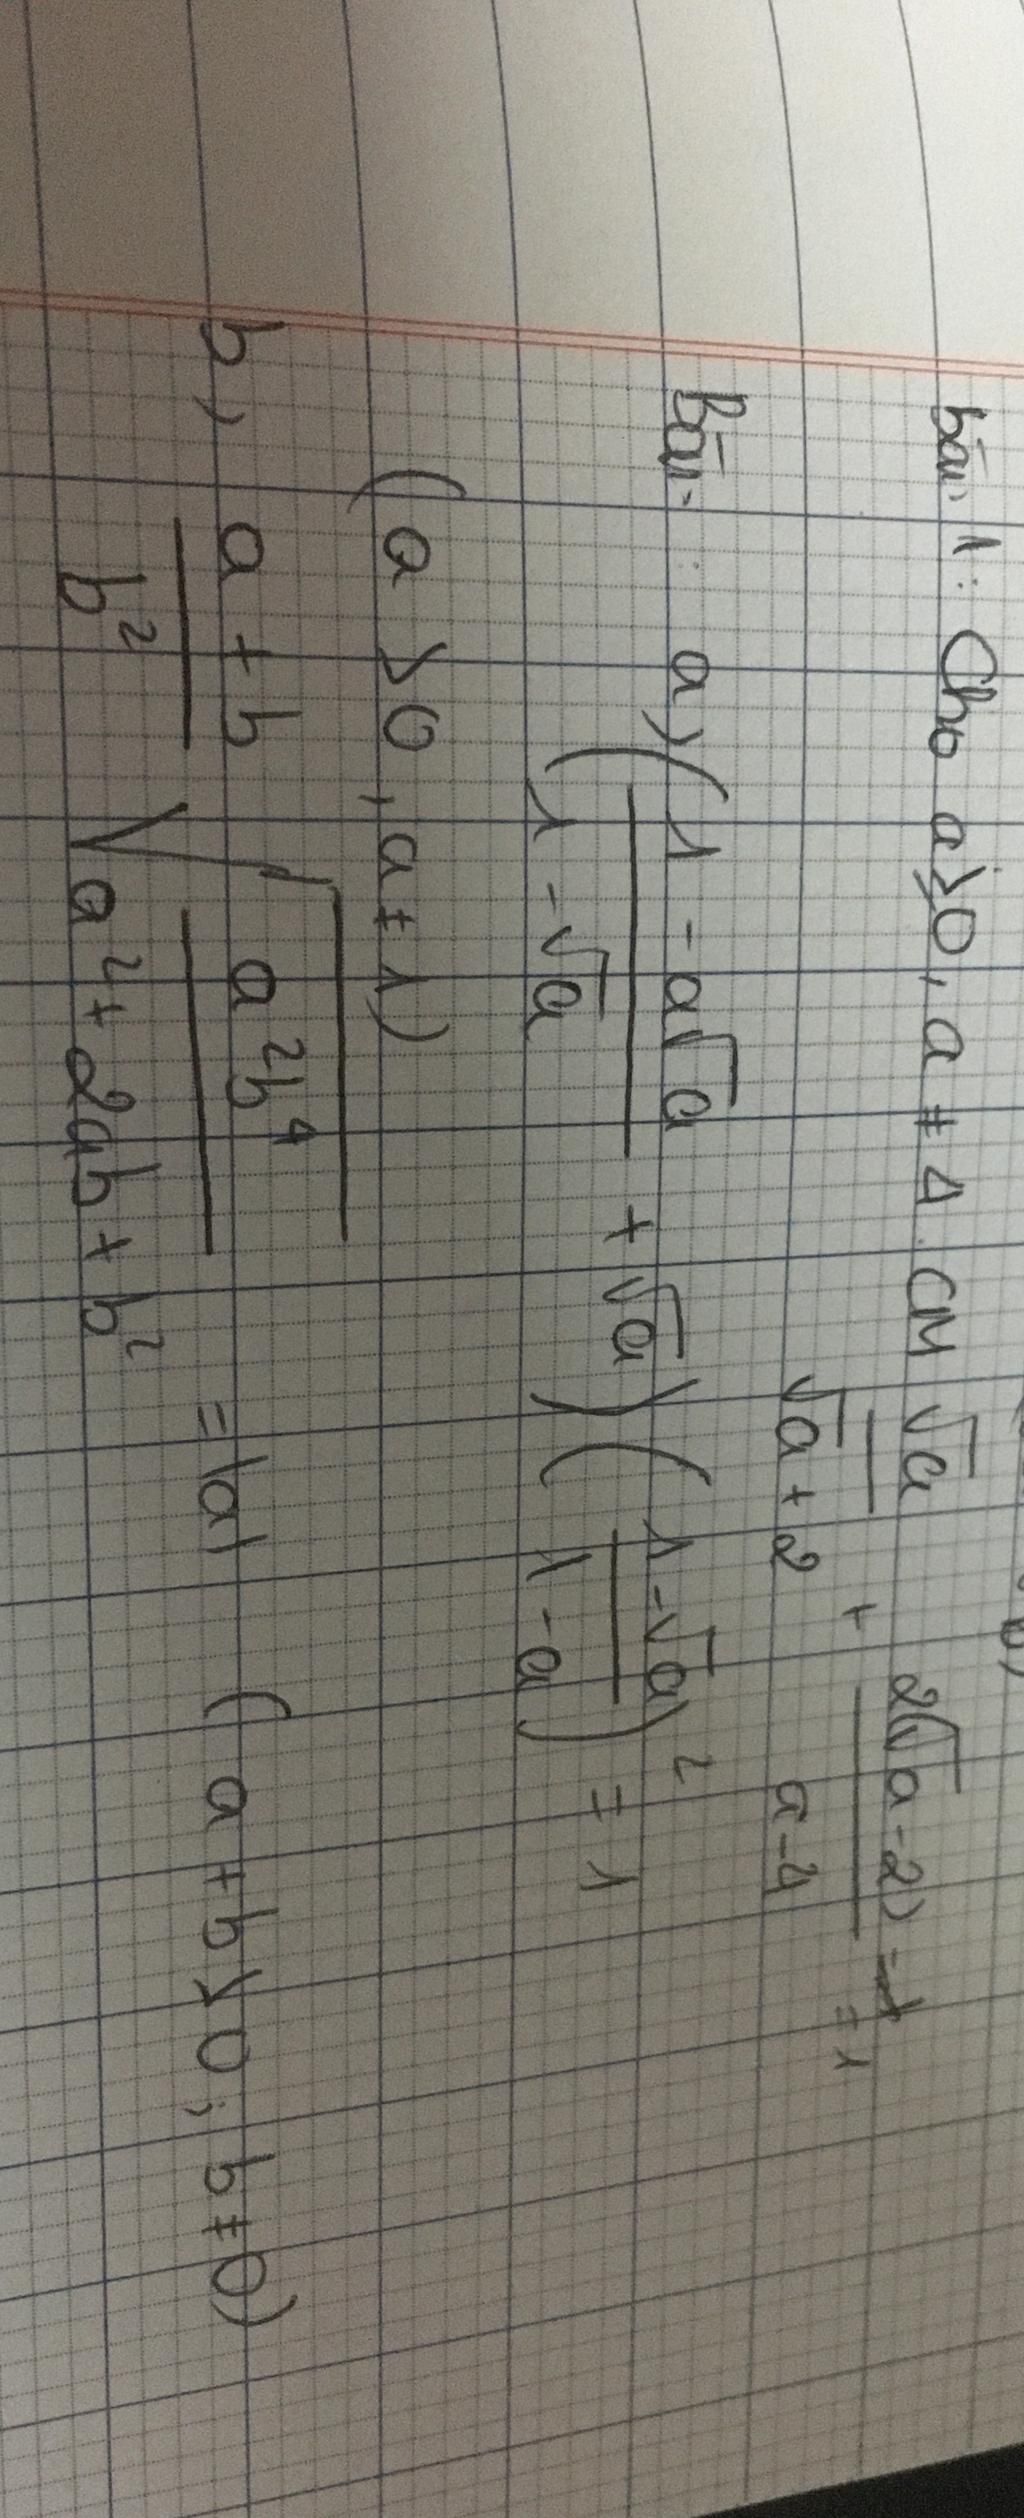 bài 1: Cho a ≥ 0, a ≠ 4. CM √a/(√a + 2) + 2(√a - 2)/(a - 4) = 1
Bài: a) ((1 - a√a)/(1 - √a) + √a)((1 - √a)/(1 - a))² = 1
(a > 0, a ≠ 1)
b) (a + b)/b² √(a²b⁴/(a² + 2ab + b²)) = |a| (a + b > 0; b ≠ 0)